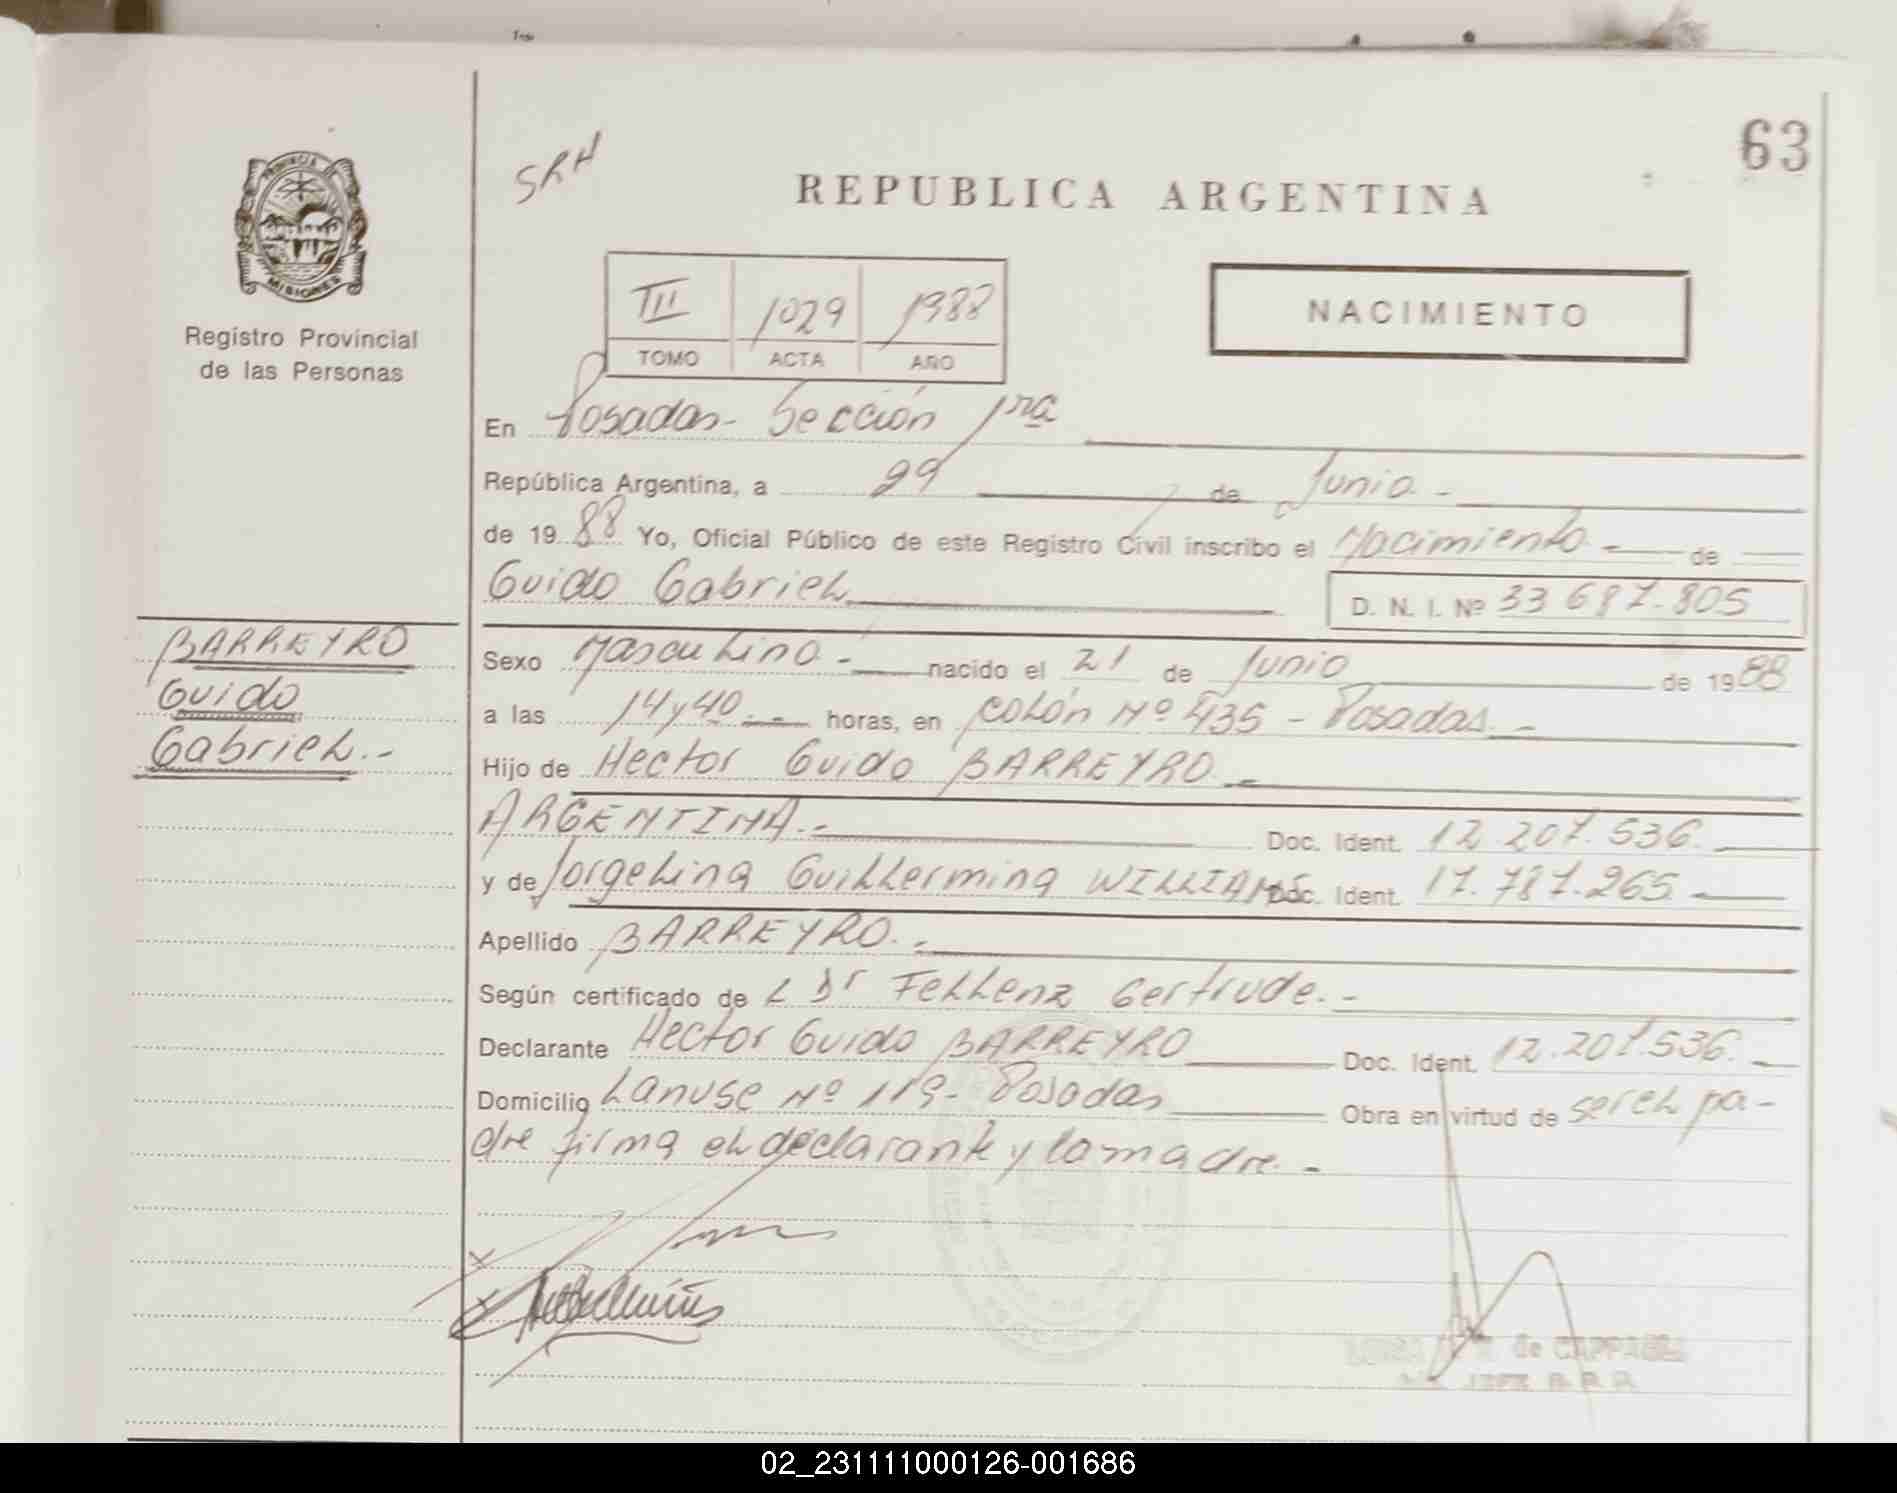 63
SRH
REPUBLICA ARGENTINA
PROVINCIA DE
MISIONES
Registro Provincial
de las Personas
III 1029 1988
TOMO ACTA AÑO
NACIMIENTO
En Posadas - Sección 1ra
República Argentina, a 29 de Junio -
de 19 88 Yo, Oficial Público de este Registro Civil inscribo el Nacimiento - de
Guido Gabriel
D. N. I. Nº 33 687.805
BARREYRO
Guido
Gabriel.-
Sexo Masculino.- nacido el 21 de Junio de 19 88
a las 14 y 40.- horas, en Colón Nº 435 - Posadas.-
Hijo de Hector Guido BARREYRO.-
ARGENTINA.- Doc. Ident. 12.207.536.
y de Jorgelina Guillermina WILLIAMS Doc. Ident. 17.787.265.
Apellido BARREYRO.-
Según certificado de L Dr Fellenz Gertrude.-
Declarante Hector Guido BARREYRO Doc. Ident. 12.207.536.-
Domicilio Lanuse Nº 119- Posadas Obra en virtud de ser el pa-
dre firma el declarante y la madre.-
de CAPPA
JEFE R. P. P.
02_231111000126-001686